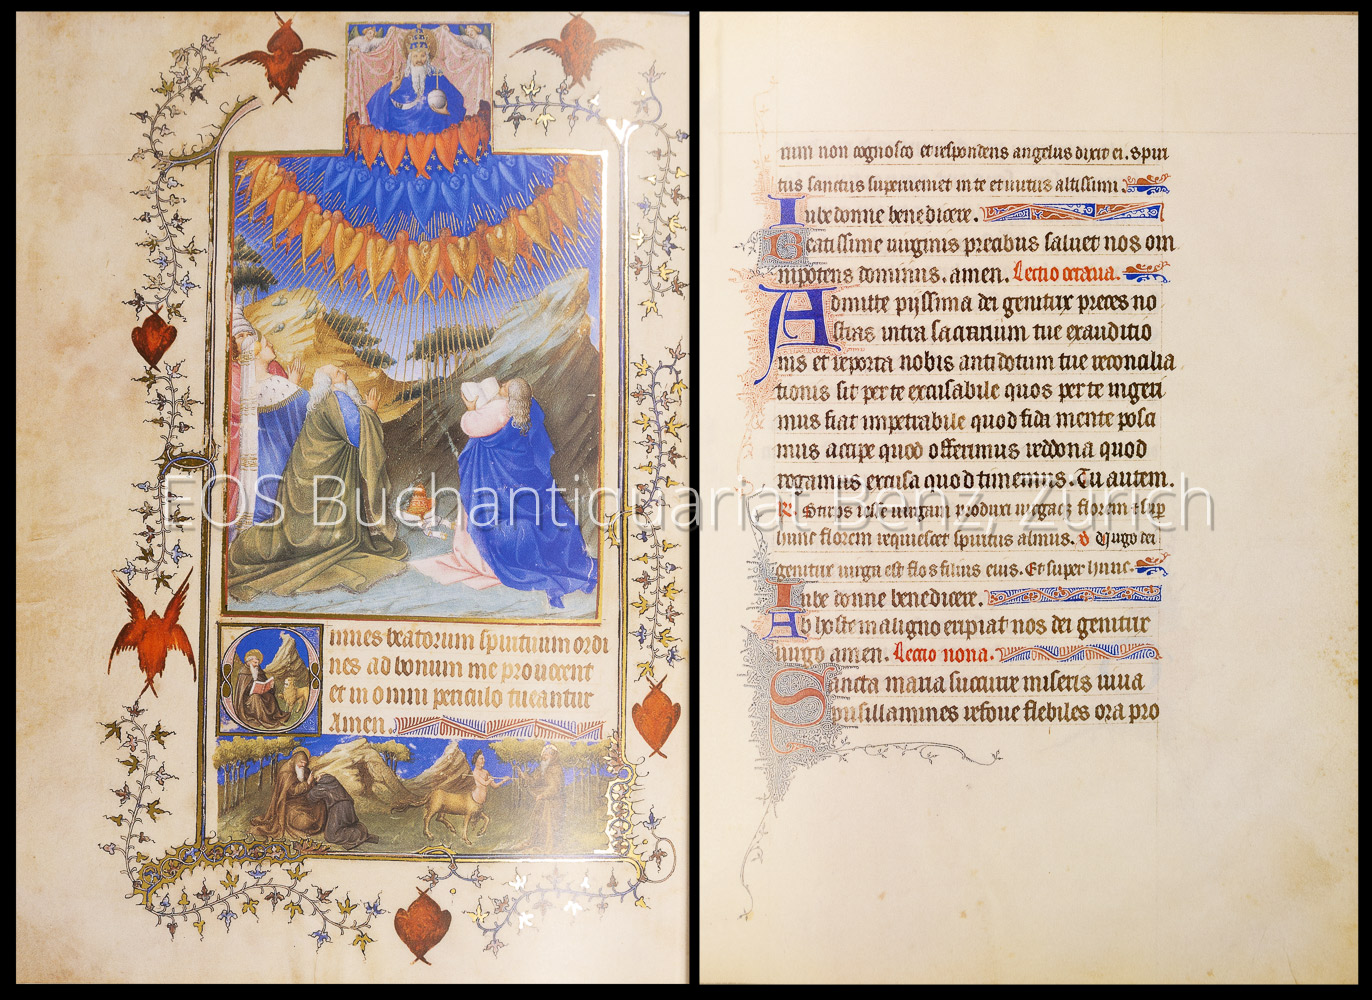 mnes beatorum spirituum ordi
nes ad bonum me prouocent
et in omni periculo tueantur
Amen.
EOS Buchantiquariat Benz, Zürich
rum non cognosco et respondens angelus dixit ei. Spiri
tus sanctus superueniet in te et uirtus altissimi
Iube domne benedicere.
Beatissime uirginis precibus saluet nos om
nipotens dominus. amen. Lectio octaua.
Admitte pijssima dei genitrix preces no
stras intra sacrarium tue exauditio
nis et reporta nobis antidotum tue reconcilia
tionis sit per te excusabile quod per te ingeri
mus fiat impetrabile quod fida mente posci
mus accipe quod offerimus redona quod
rogamus excusa quod timemus. Tu autem.
R. Stirps iesse uirgam produxit uirgaq florem et sup
hunc florem requiescet spiritus almus. V Virgo dei
genitrix uirga est flos filius eius. Et super hunc.
Iube domne benedicere.
Ab hoste maligno eripiat nos dei genitrix
uirgo amen. Lectio nona.
Sancta maria succurre miseris iuua
pusillanimes refoue flebiles ora pro